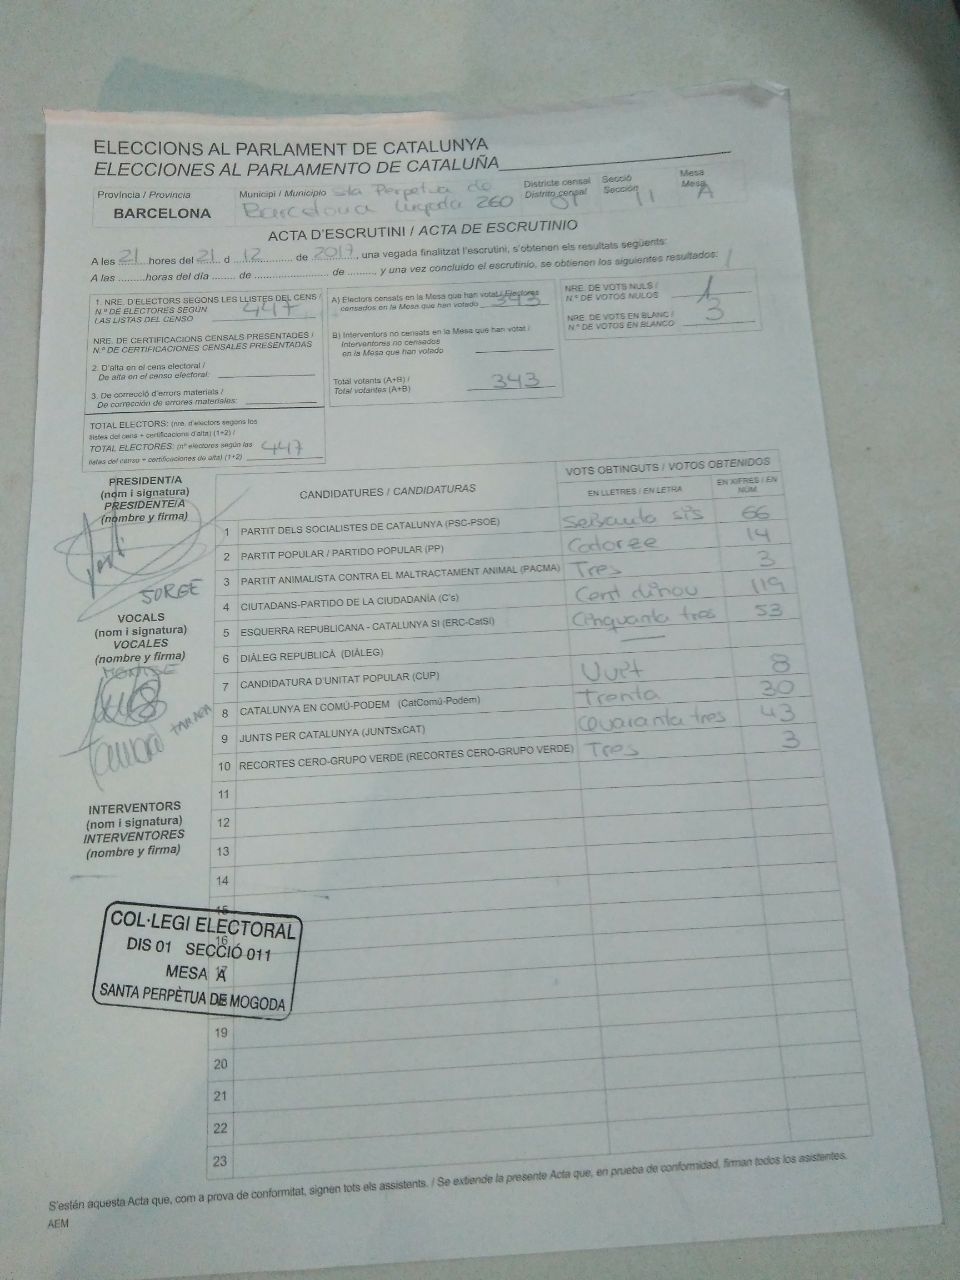 ELECCIONS AL PARLAMENT DE CATALUNYA
ELECCIONES AL PARLAMENTO DE CATALUÑA
Província / Provincia
BARCELONA
Municipi / Municipio Sta Perpetua de
Barcelona 260
Districte censal
Distrito censal 01
Secció
Sección 11
Mesa
Mesa A
ACTA D'ESCRUTINI / ACTA DE ESCRUTINIO
A les 21 hores del 21 d 12 de 2017, una vegada finalitzat l'escrutini, s'obtenen els resultats següents:
A las ........horas del día ....... de ...................... de ........, y una vez concluido el escrutinio, se obtienen los siguientes resultados:
1. NRE. D'ELECTORS SEGONS LES LLISTES DEL CENS /
N.º DE ELECTORES SEGÚN
LAS LISTAS DEL CENSO 447
NRE. DE CERTIFICACIONS CENSALS PRESENTADES /
N.º DE CERTIFICACIONES CENSALES PRESENTADAS
2. D'alta en el cens electoral /
De alta en el censo electoral:
3. De correcció d'errors materials /
De corrección de errores materiales:
TOTAL ELECTORS: (nre. d'electors segons les
llistes del cens + certificacions d'alta) (1+2) /
TOTAL ELECTORES: (nº electores según las
listas del censo + certificaciones de alta) (1+2) 447
A) Electors censats en la Mesa que han votat / Electores
censados en la Mesa que han votado 343
B) Interventors no censats en la Mesa que han votat /
Interventores no censados
en la Mesa que han votado
Total votants (A+B) /
Total votantes (A+B) 343
NRE. DE VOTS NULS /
N.º DE VOTOS NULOS 1
NRE. DE VOTS EN BLANC /
N.º DE VOTOS EN BLANCO 3
PRESIDENT/A
(nom i signatura)
PRESIDENTE/A
(nombre y firma)
JORGE
VOCALS
(nom i signatura)
VOCALES
(nombre y firma)
MONTSE
TAMARA
INTERVENTORS
(nom i signatura)
INTERVENTORES
(nombre y firma)
CANDIDATURES / CANDIDATURAS
VOTS OBTINGUTS / VOTOS OBTENIDOS
EN LLETRES / EN LETRA
EN XIFRES / EN NÚM
1 PARTIT DELS SOCIALISTES DE CATALUNYA (PSC-PSOE) Seixanta sis 66
2 PARTIT POPULAR / PARTIDO POPULAR (PP) Catorze 14
3 PARTIT ANIMALISTA CONTRA EL MALTRACTAMENT ANIMAL (PACMA) Tres 3
4 CIUTADANS-PARTIDO DE LA CIUDADANÍA (C's) Cent dinou 119
5 ESQUERRA REPUBLICANA - CATALUNYA SÍ (ERC-CatSí) Cinquanta tres 53
6 DIÀLEG REPUBLICÀ (DIÀLEG) —
7 CANDIDATURA D'UNITAT POPULAR (CUP) Vuit 8
8 CATALUNYA EN COMÚ-PODEM (CatComú-Podem) Trenta 30
9 JUNTS PER CATALUNYA (JUNTSxCAT) Quaranta tres 43
10 RECORTES CERO-GRUPO VERDE (RECORTES CERO-GRUPO VERDE) Tres 3
11
12
13
14
15
16
17
19
20
21
22
23
COL·LEGI ELECTORAL
DIS 01 SECCIÓ 011
MESA A
SANTA PERPÈTUA DE MOGODA
S'estén aquesta Acta que, com a prova de conformitat, signen tots els assistents. / Se extiende la presente Acta que, en prueba de conformidad, firman todos los asistentes.
AEM